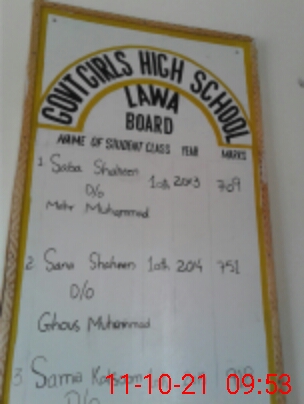 GOVT GIRLS HIGH SCHOOL
LAWA
BOARD
NAME OF STUDENT CLASS YEAR MARKS
1. Saba Shaheen 10th 2013 709
D/o
Mehr Muhammad
2. Sana Shaheen 10th 2014 751
D/O
Ghous Muhammad
3 Sama
D/o
11-10-21 09:53